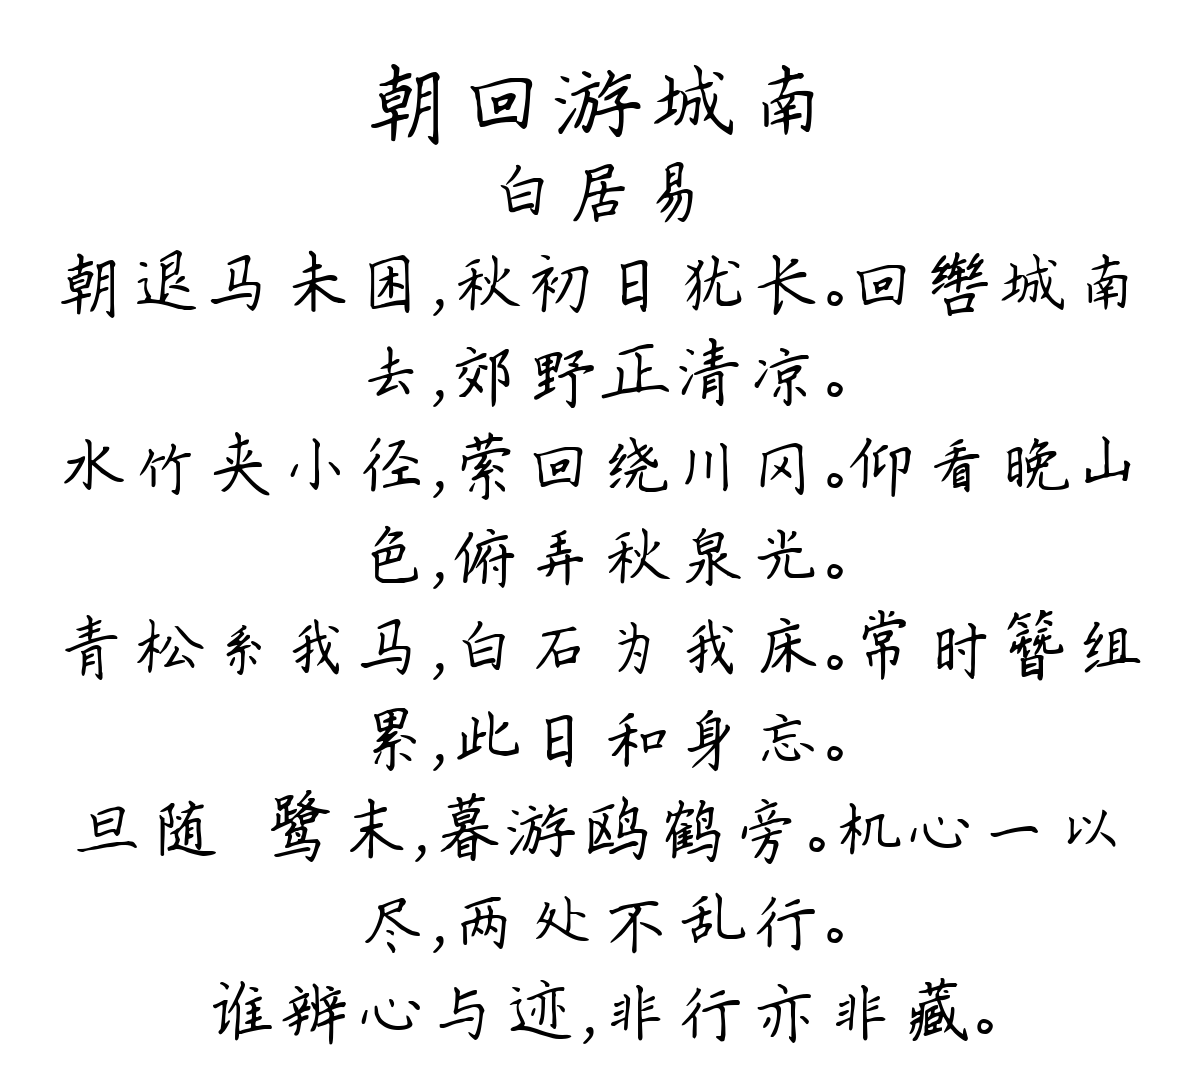 朝回游城南
白居易
朝退马未困,秋初日犹长。回辔城南
去,郊野正清凉。
水竹夹小径,萦回绕川冈。仰看晚山
色,俯弄秋泉光。
青松系我马,白石为我床。常时簪组
累,此日和身忘。
旦随 鹭末,暮游鸥鹤旁。机心一以
尽,两处不乱行。
谁辨心与迹,非行亦非藏。